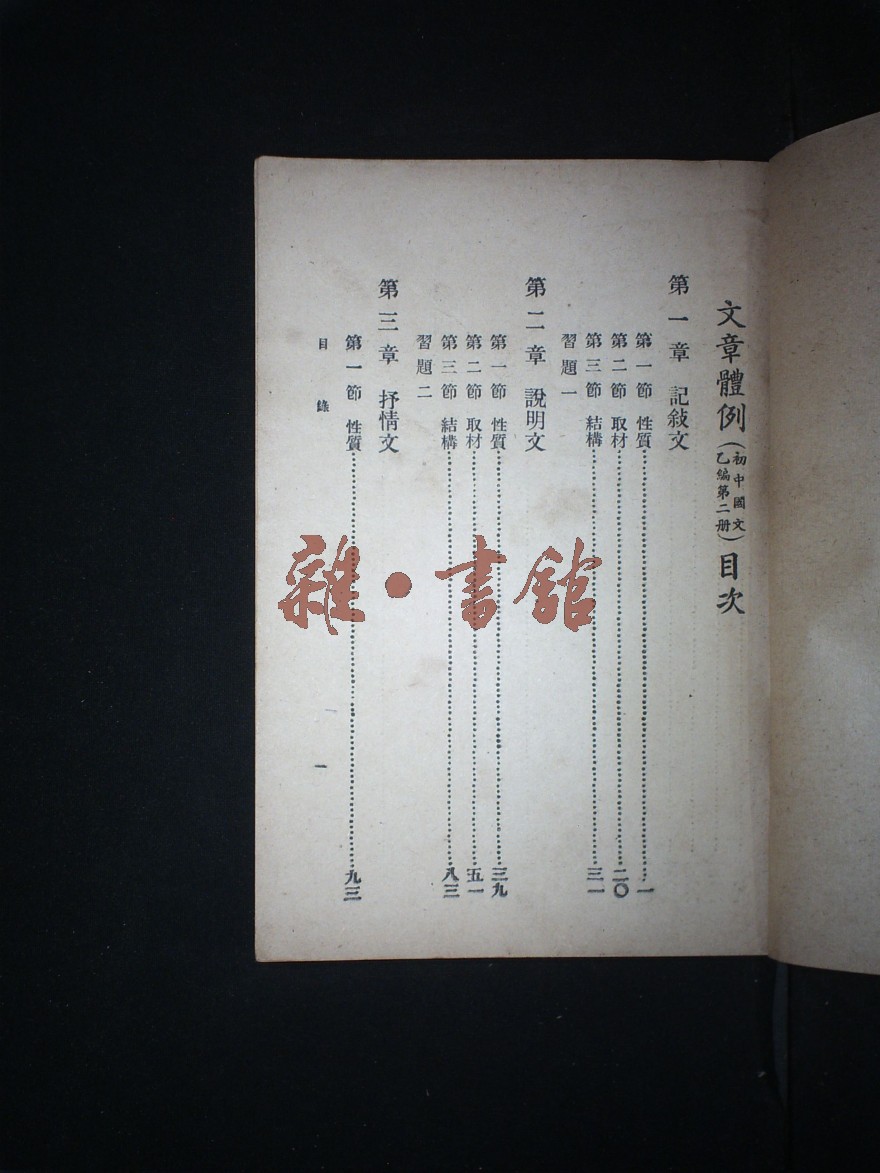 文章體例(初中國文乙編第二册)目次
第一章 記敍文
第一節 性質……一
第二節 取材……二〇
第三節 結構……三一
習題一
第二章 說明文
第一節 性質……三九
第二節 取材……五一
第三節 結構……八三
習題二
第三章 抒情文
第一節 性質……九三
目錄 一
雜·書館